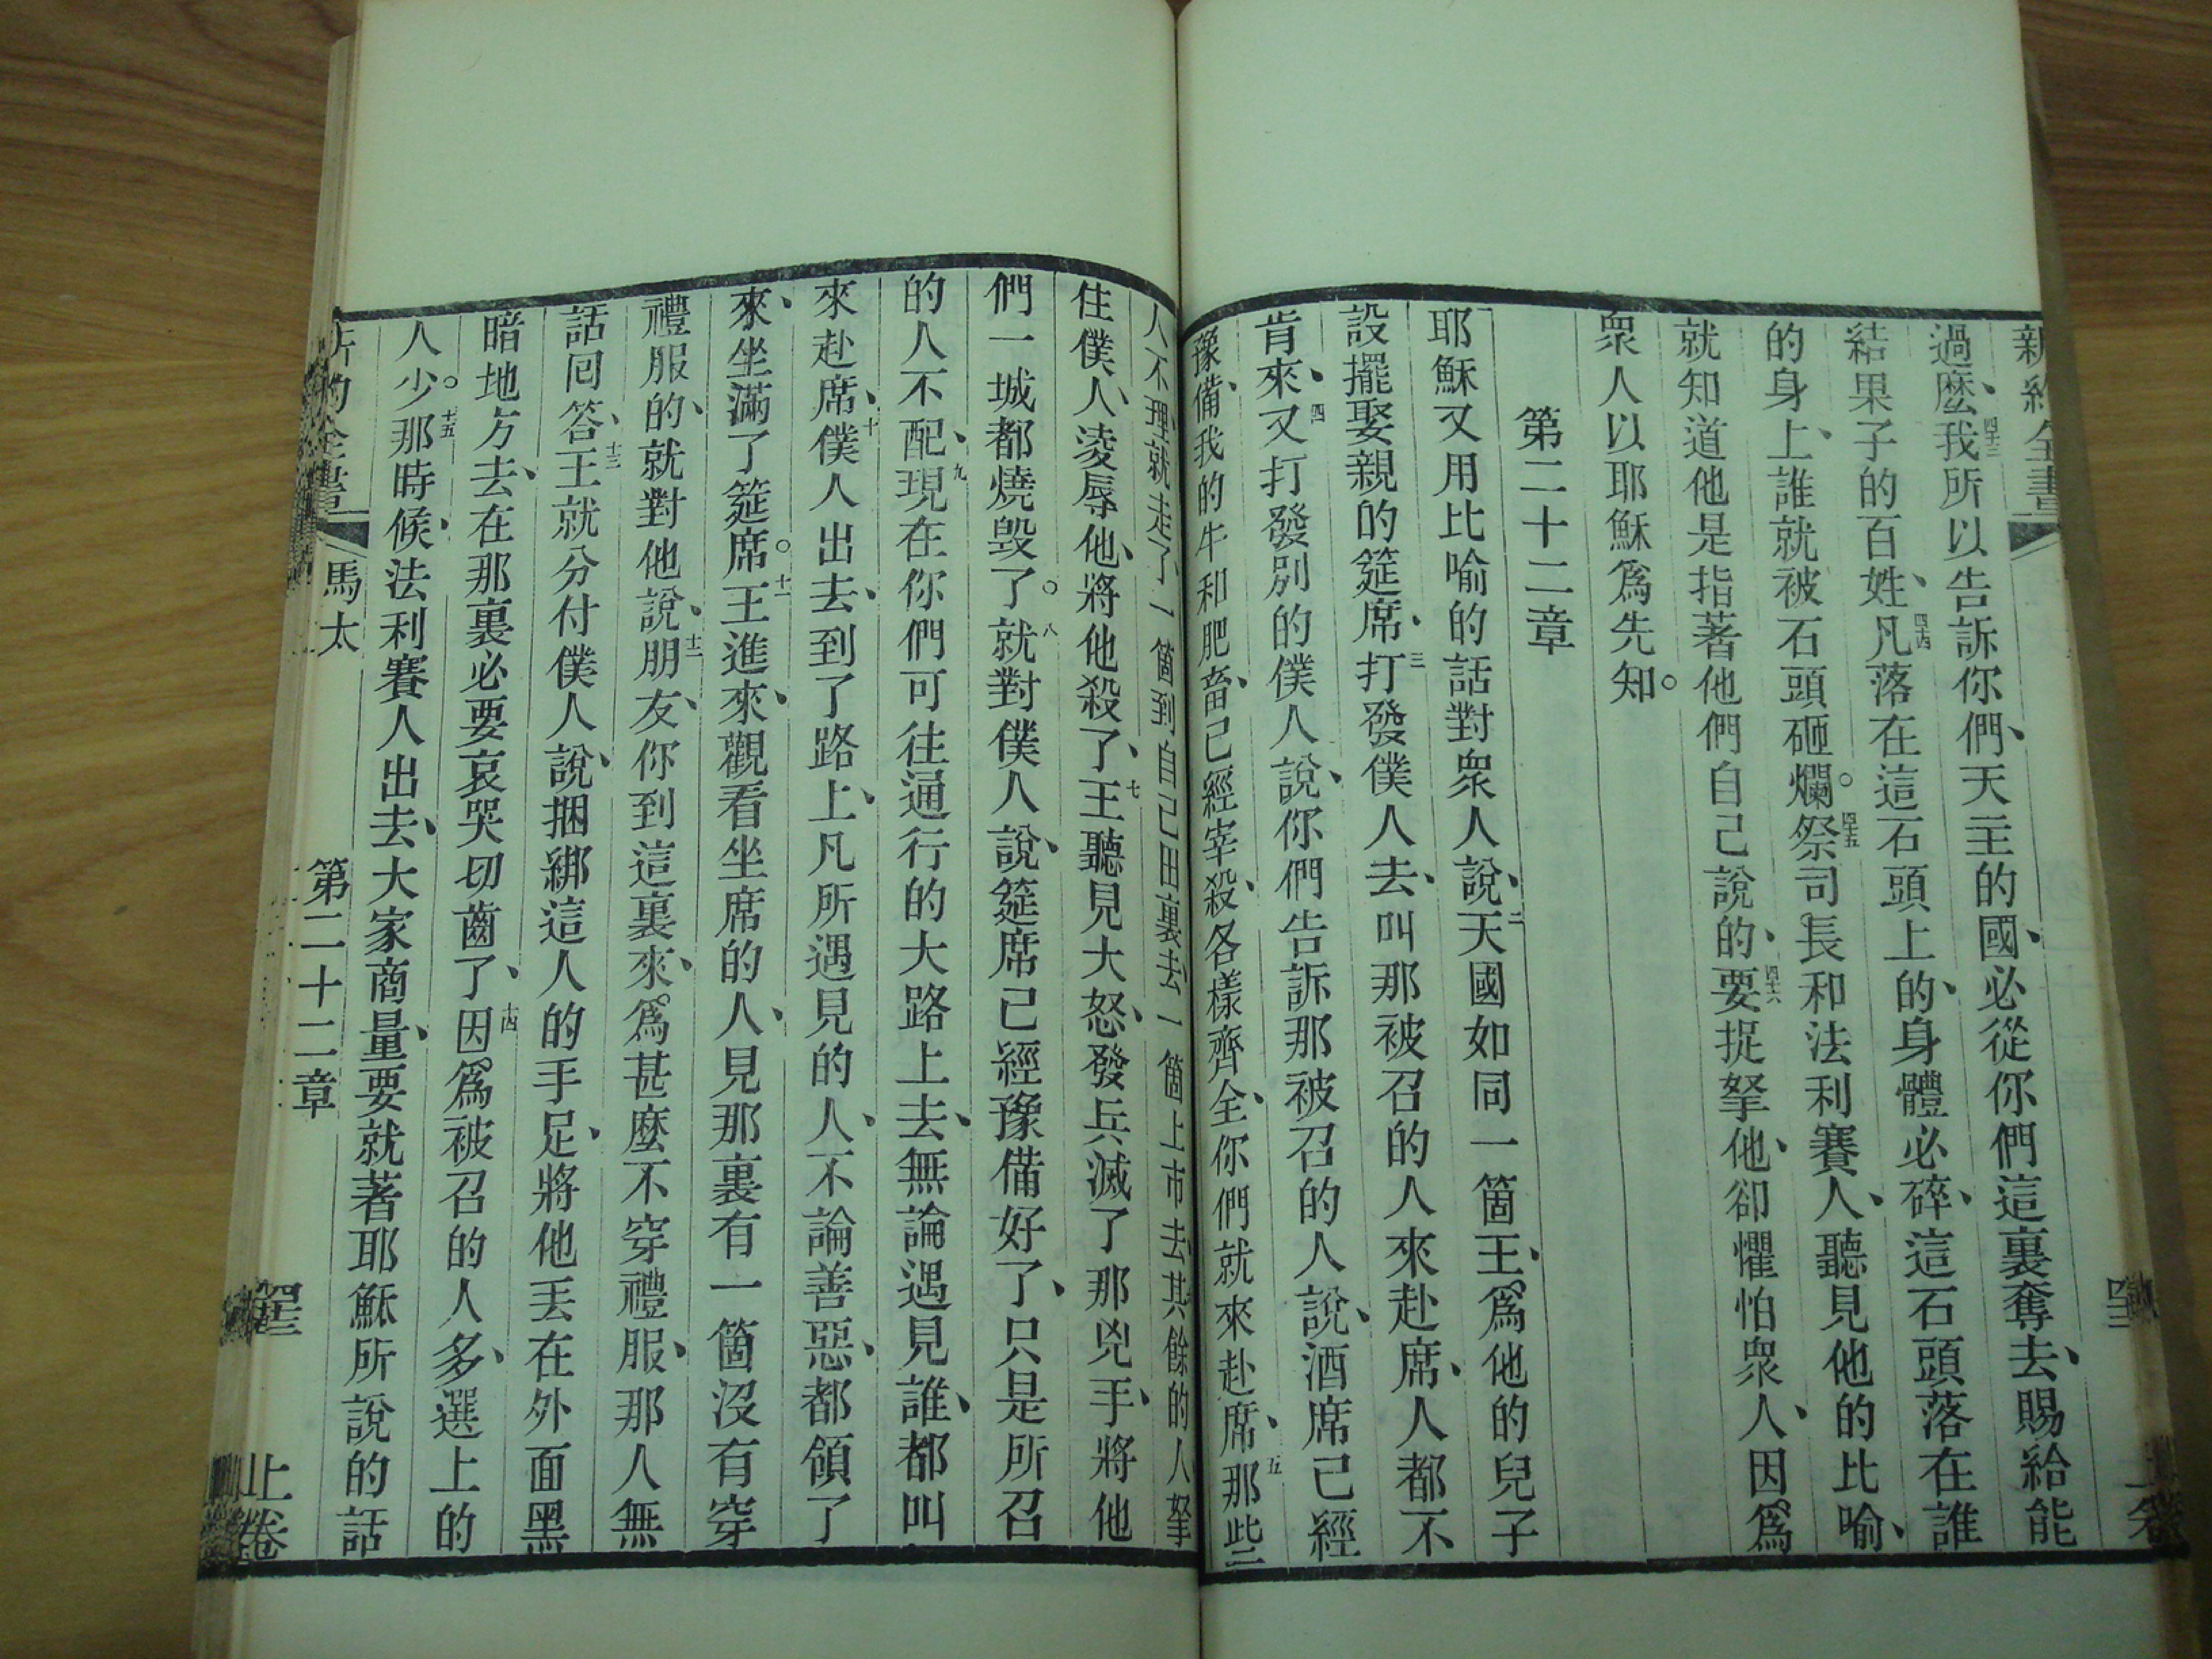 新約全書
過麼、四十三我所以告訴你們、天主的國、必從你們這裏奪去、賜給能
結果子的百姓、四十四凡落在這石頭上的、身體必碎、這石頭落在誰
的身上、誰就被石頭砸爛。四十五祭司長和法利賽人、聽見他的比喻、
就知道他是指著他們自己說的、四十六要捉拏他、卻懼怕衆人、因爲
衆人以耶穌爲先知。
第二十二章
耶穌又用比喻的話對衆人說、二天國如同一箇王、爲他的兒子
設擺娶親的筵席、三打發僕人去、叫那被召的人來赴席、人都不
肯來、四又打發別的僕人說、你們告訴那被召的人說、酒席已經
豫備、我的牛和肥畜、已經宰殺、各樣齊全、你們就來赴席、五那些
人不理就走了、一箇到自己田裏去、一箇上市去、其餘的人拏
住僕人、凌辱他、將他殺了、七王聽見大怒、發兵滅了那兇手、將他
們一城都燒毀了。八就對僕人說、筵席已經豫備好了、只是所召
的人不配、九現在你們可往通行的大路上去、無論遇見誰、都叫
來赴席、十僕人出去、到了路上、凡所遇見的人、不論善惡、都領了
來、坐滿了筵席。十一王進來、觀看坐席的人、見那裏有一箇沒有穿
禮服的、就對他說、十二朋友、你到這裏來、爲甚麼不穿禮服、那人無
話回答、十三王就分付僕人說、捆綁這人的手足、將他丟在外面黑
暗地方去、在那裏必要哀哭切齒了、十四因爲被召的人多、選上的
人少。十五那時候、法利賽人出去、大家商量、要就著耶穌所說的話
馬太
第二十二章
上卷